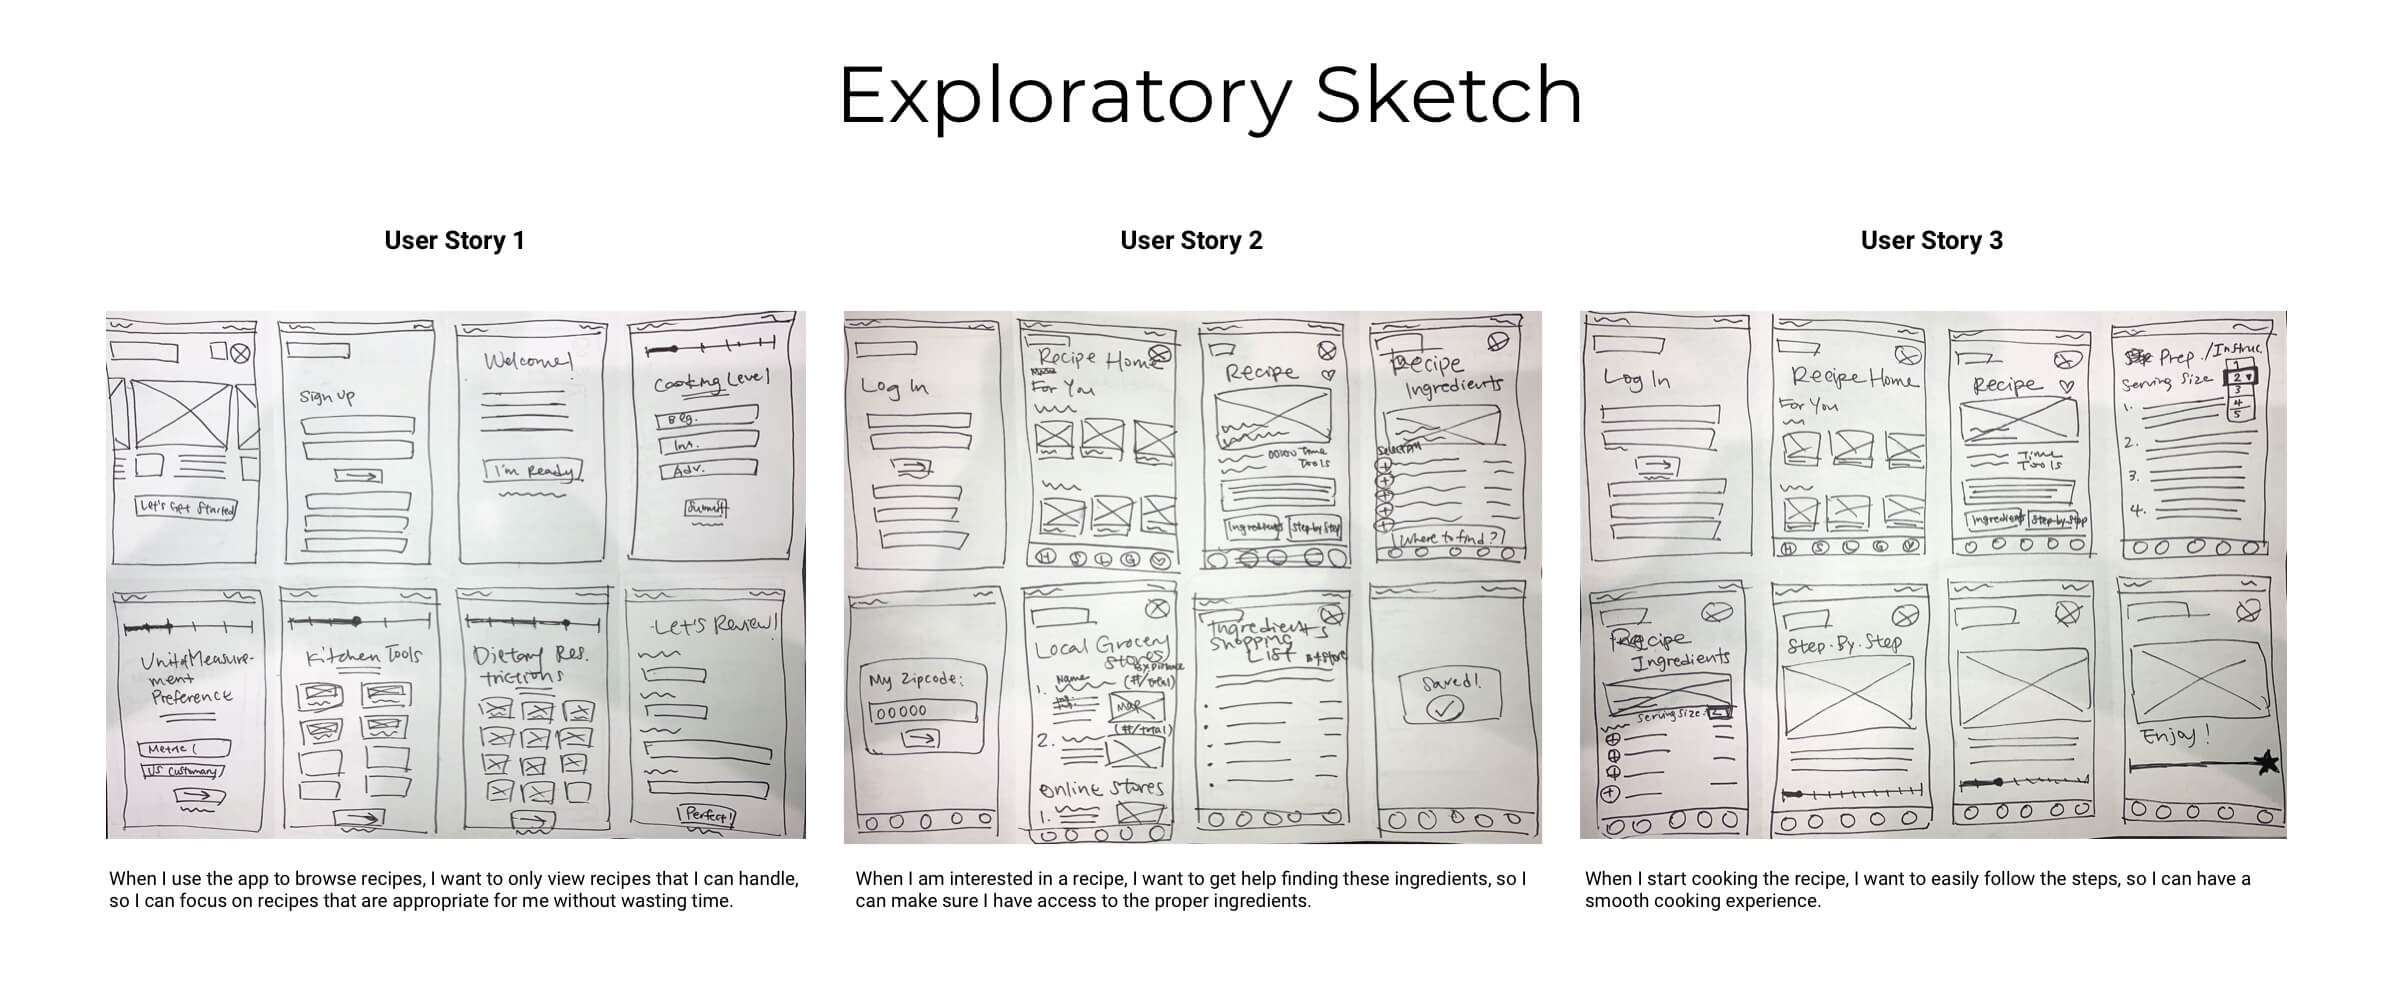 Exploratory Sketch
User Story 1
Let's Get Started
Sign up
Welcome!
I'm Ready
Cooking Level
Beg.
Int.
Adv.
Submit
Unit of Measure-
ment
Preference
Metric
US Customary
Kitchen Tools
Dietary Res.
trictions
Let's Review!
Perfect!
When I use the app to browse recipes, I want to only view recipes that I can handle,
so I can focus on recipes that are appropriate for me without wasting time.
User Story 2
Log In
Recipe Home
For You
H S L G
Recipe
Time
Tools
Ingredients Step by Step
Recipe
Ingredients
Select All
Where to find?
My Zipcode:
00000
Local Grocery
Stores
By Distance
Name
1. (#/total)
Map
(#/total)
2.
Online Stores
1.
Ingredients
Shopping
List
Saved!
When I am interested in a recipe, I want to get help finding these ingredients, so I
can make sure I have access to the proper ingredients.
User Story 3
Log In
Recipe Home
For You
H S L G
Recipe
Time
Tools
Ingredients Step-by-Step
Prep./Instruc.
1
Serving Size 2
3
4
5
1.
2.
3.
4.
Recipe
Ingredients
Serving Size: 2
Step-By-Step
Enjoy!
When I start cooking the recipe, I want to easily follow the steps, so I can have a
smooth cooking experience.